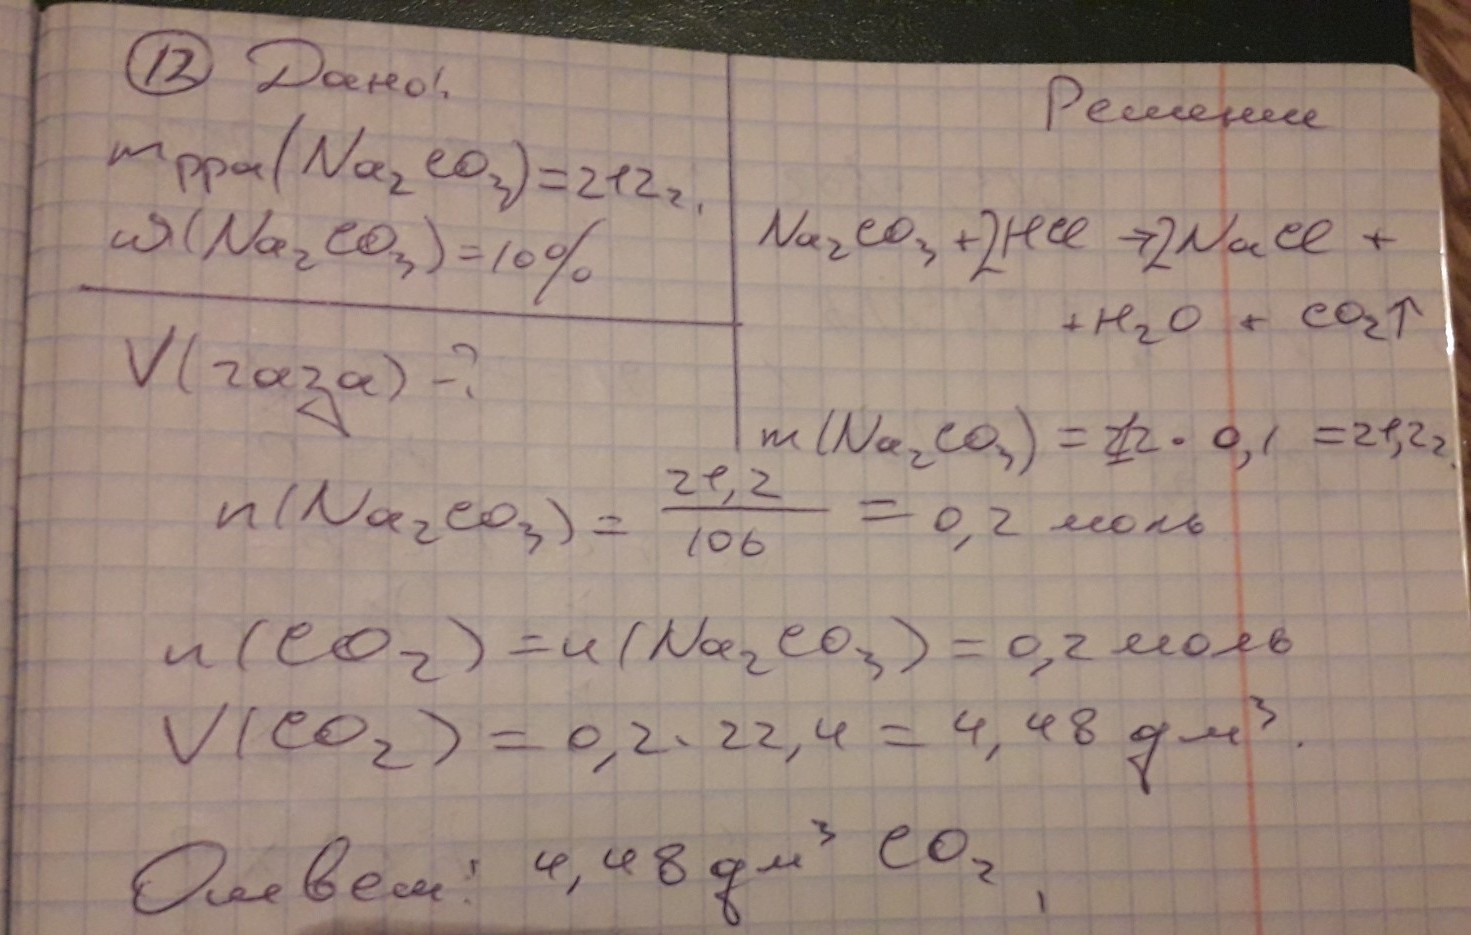 12 Дано:
mрра(Na2CO3)=212г.
ω(Na2CO3)=10%
V(газа)-?
Решение
Na2CO3+2HCl→2NaCl+
+H2O+CO2↑
m(Na2CO3)=212·0,1=21,2г
n(Na2CO3)=21,2/106=0,2 моль
n(CO2)=n(Na2CO3)=0,2 моль
V(CO2)=0,2·22,4=4,48 дм³.
Ответ: 4,48 дм³ CO2,